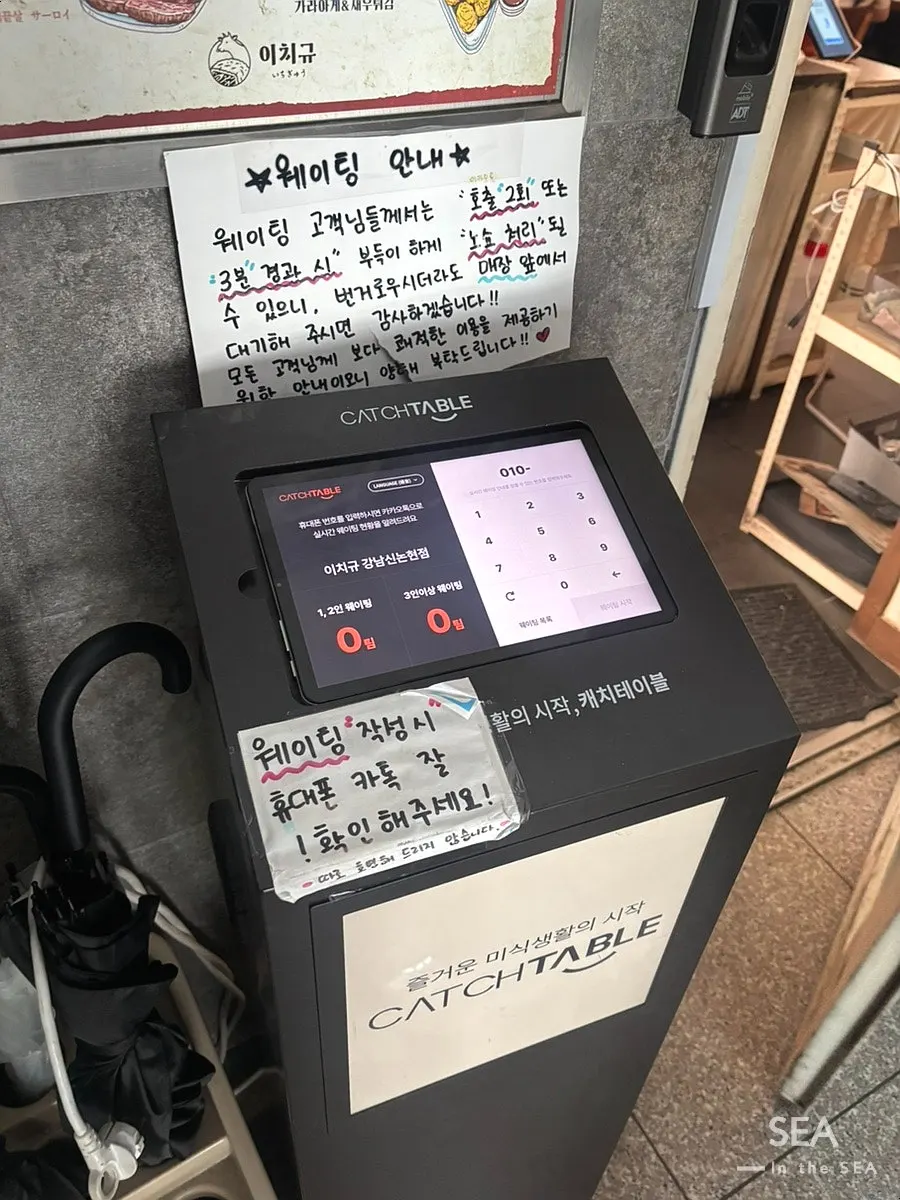 끝살 サーロイ
가라아게&새우튀김
이치규
いちぎゅう
ADT
★웨이팅 안내★
웨이팅 고객님들께서는 "호출 2회" 또는
"3분 경과 시" 부득이 하게 "노쇼 처리" 될
수 있으니, 번거로우시더라도 매장 앞에서
대기해 주시면 감사하겠습니다!!
모든 고객님께 보다 쾌적한 이용을 제공하기
위한 안내이오니 양해 부탁드립니다!! ♥
CATCHTABLE
CATCHTABLE
휴대폰 번호를 입력하시면 카카오톡으로
실시간 웨이팅 현황을 알려드려요
이치규 강남신논현점
1, 2인 웨이팅
0팀
3인이상 웨이팅
0팀
010-
1 2 3
4 5 6
7 8 9
0 ←
웨이팅 목록
웨이팅 시작
활의 시작, 캐치테이블
웨이팅 작성 시
휴대폰 카톡 잘
!확인해주세요!
따로 호명해 드리지 않습니다.
즐거운 미식생활의 시작
CATCHTABLE
SEA
In the SEA